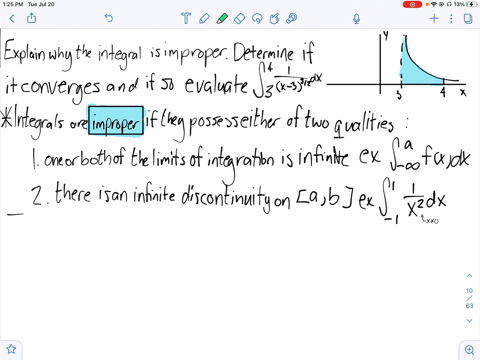 1:25 PM Tue Jul 20
13%
Explain why the integral is improper. Determine if
it converges and if so evaluate ∫₃⁴ 1/(x-3)^(3/2) dx
y
3 4 x
*Integrals are improper if they possess either of two qualities:
1. one or both of the limits of integration is infinite ex ∫_-∞^a f(x)dx
2. there is an infinite discontinuity on [a,b] ex ∫_-1^1 1/x² dx
x≠0
10
/
63